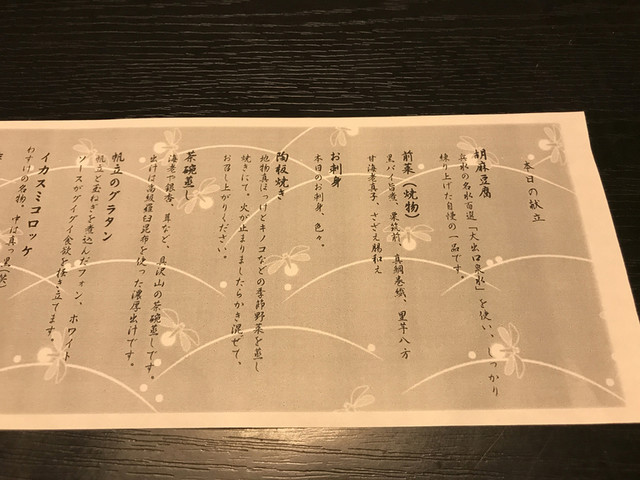 本日の献立
胡麻豆腐
名水の名水百選「大出口泉水」を使い、しっかり
練り上げた自慢の一品です。
前菜(焼物)
黒バイ旨煮、栗筑前、真鯛巻繊、里芋八方
甘海老真子、さざえ腸和え
お刺身
本日のお刺身、色々。
陶板焼き
地物真ほっけとキノコなどの季節野菜を蒸し
焼きにて。火が止まりましたらかき混ぜて、
お召し上がりください。
茶碗蒸し
海老や銀杏、茸など、具沢山の茶碗蒸しです。
出汁は高級羅臼昆布を使った濃厚出汁です。
帆立のグラタン
帆立と玉ねぎを煮込んだフォン、ホワイト
ソースがグイグイ食欲を掻き立てます。
イカスミコロッケ
わすけの名物。中は真っ黒(笑)